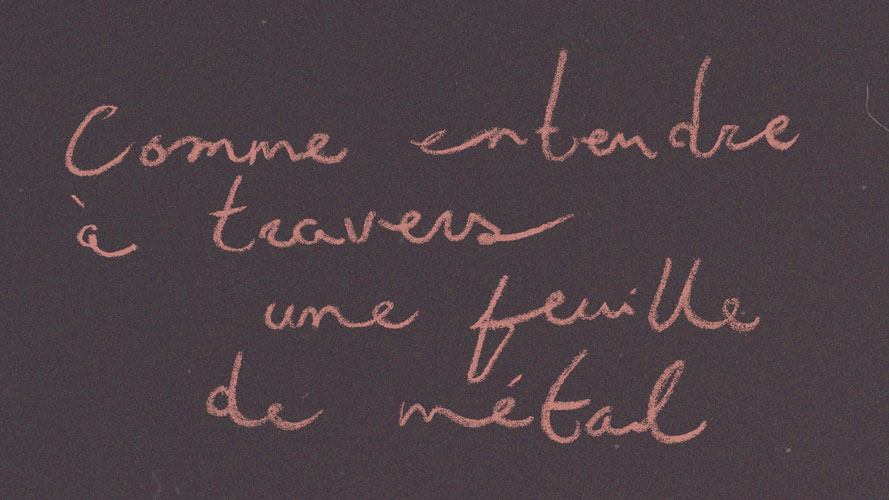 Comme entendre
à travers
une feuille
de métal